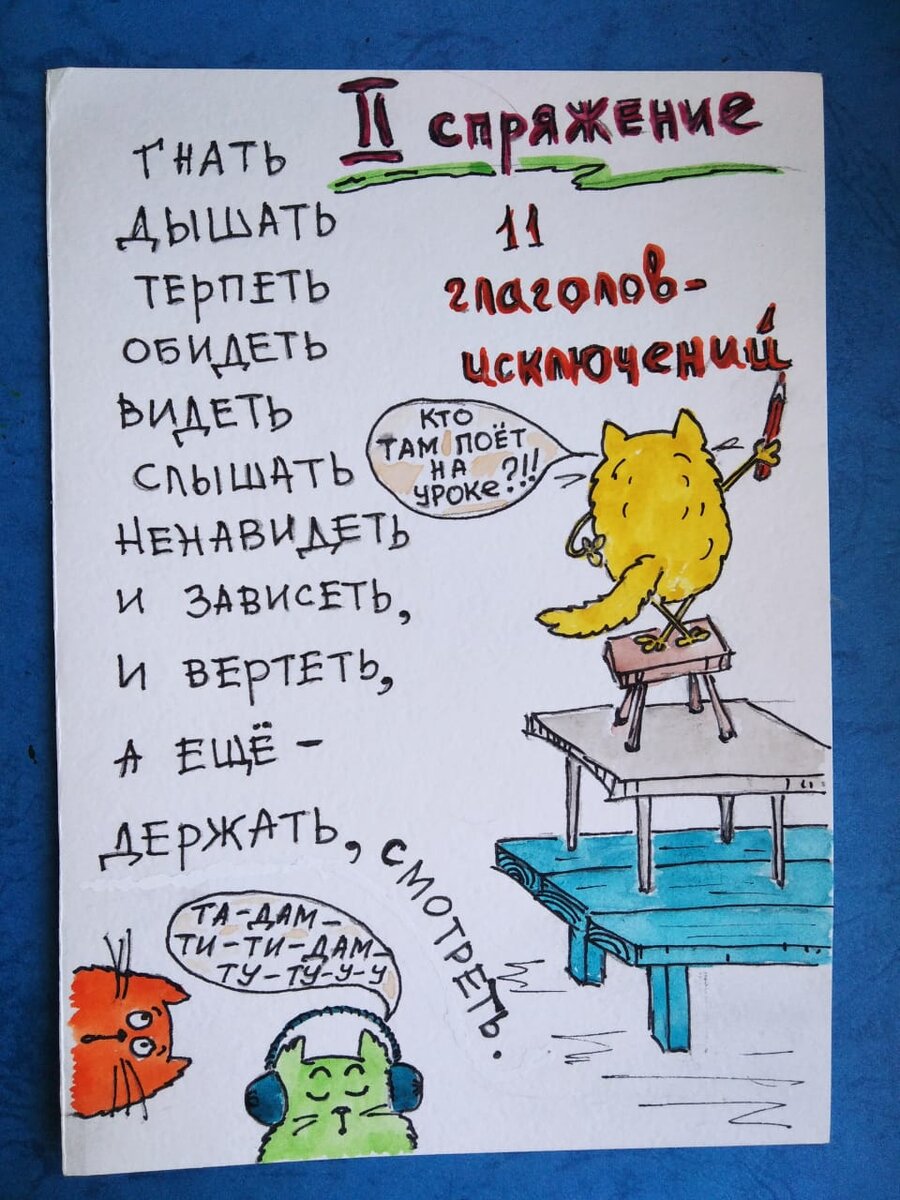 II спряжение
11
глаголов-
исключений
ГНАТЬ
ДЫШАТЬ
ТЕРПЕТЬ
ОБИДЕТЬ
ВИДЕТЬ
СЛЫШАТЬ
НЕНАВИДЕТЬ
И ЗАВИСЕТЬ,
И ВЕРТЕТЬ,
А ЕЩЁ –
ДЕРЖАТЬ, СМОТРЕТЬ.
КТО
ТАМ ПОЁТ
НА
УРОКЕ?!!
ТА-ДАМ-
ТИ-ТИ-ДАМ-
ТУ-ТУ-У-У